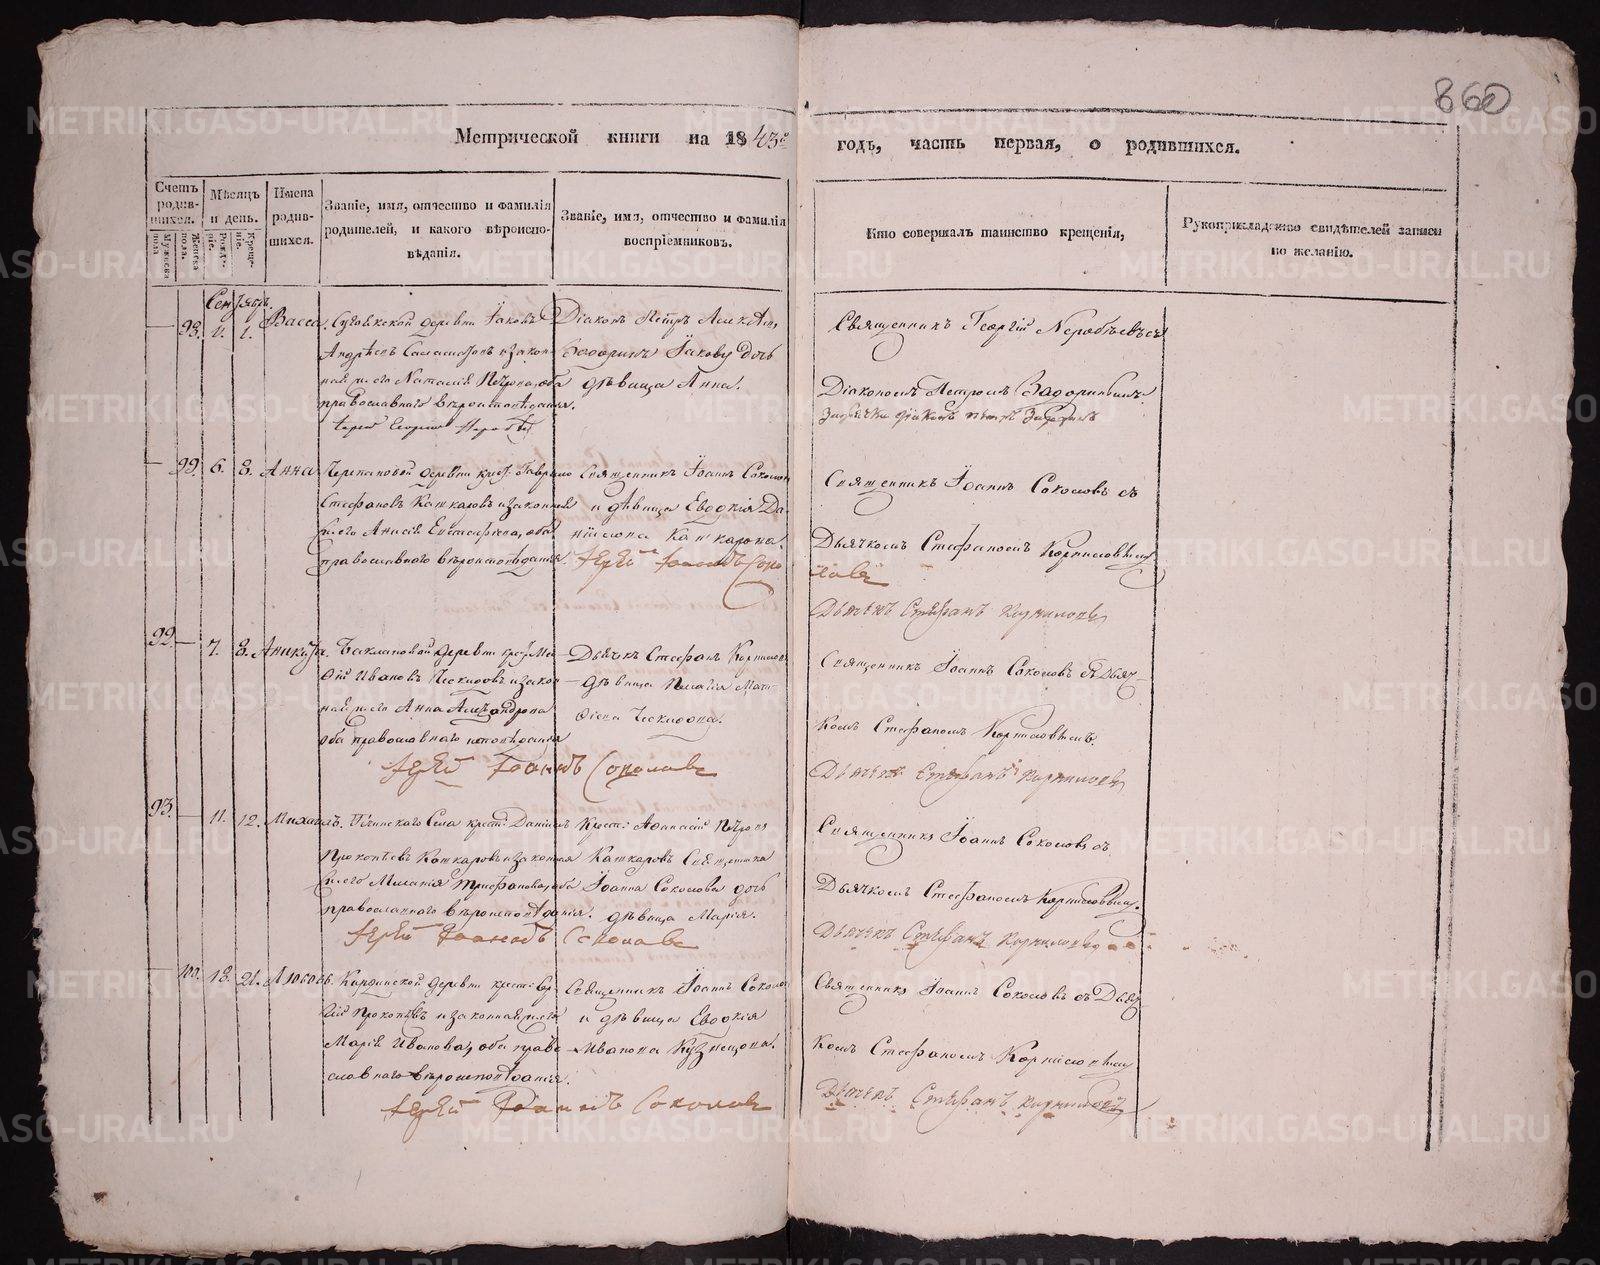 860
Метрической книги на 1843й годъ, часть первая, о родившихся.
Счетъ родив-шихся.
Мужеска пола.
Женска пола.
Мѣсяцъ и день.
Рожде-нiе.
Креще-нiе.
Имена родив-шихся.
Званiе, имя, отчество и фамилiя родителей, и какого вѣроиспо-вѣданiя.
Званiе, имя, отчество и фамилiя воспрiемниковъ.
Кто совершалъ таинство крещенiя,
Рукоприкладство свидѣтелей записи по желанiю.
Сентябрь.
98. 1. Васса.
деревни Iаковъ
Андрѣевъ и закон-
ная его Наталiя Петрова, оба
православнаго вѣроисповѣданiя.
Дiаконъ Петръ
Iакову дочь
дѣвица Анна.
Священникъ Георгiй
Дiакономъ Петромъ
99. 6. 8. Анна
деревни крест. Гаврило
Стефановъ Кашкаровъ и законная
его Анисiя Евстафiева, оба
православнаго вѣроисповѣданiя.
Священникъ Iоаннъ Соколовъ
и дѣвица Евдокiя Да-
нiилова Кашкарова.
Iерей Iоаннъ Соко
ловъ
Священникъ Iоаннъ Соколовъ съ
Дьячкомъ Стефаномъ Корниловымъ
Дьячекъ Стефанъ Корниловъ
92. 7. 8. Аникита.
Баклановой деревни
Ивановъ и закон-
ная его Анна Александрова
оба православнаго исповѣданiя
Дьячекъ Стефанъ Корниловъ
дѣвица Пелагiя
Iерей Iоаннъ Соколовъ
Священникъ Iоаннъ Соколовъ съ Дьяч-
комъ Стефаномъ Корниловымъ.
Дьячекъ Стефанъ Корниловъ
93. 11. 12. Михаилъ.
Села крест. Данiилъ
Прокопьевъ Кашкаровъ и законная
его Меланiя Трифанова, оба
православнаго вѣроисповѣданiя.
Крест. Афанасiй Петровъ
Кашкаровъ Священника
Iоанна Соколова дочь
дѣвица Марiя.
Iерей Iоаннъ Соколовъ
Священникъ Iоаннъ Соколовъ съ
Дьячкомъ Стефаномъ Корниловымъ.
Дьячекъ Стефанъ Корниловъ
100. 18. 21. Любовь.
деревни крест.
Прокопьевъ и законная его
Марiя Иванова, оба право-
славнаго вѣроисповѣданiя.
Священникъ Iоаннъ Соколовъ
и дѣвица Евдокiя
Иванова Кузнецова.
Iерей Iоаннъ Соколовъ
Священникъ Iоаннъ Соколовъ съ Дьяч-
комъ Стефаномъ Корниловымъ
Дьячекъ Стефанъ Корниловъ
METRIKI.GASO-URAL.RU